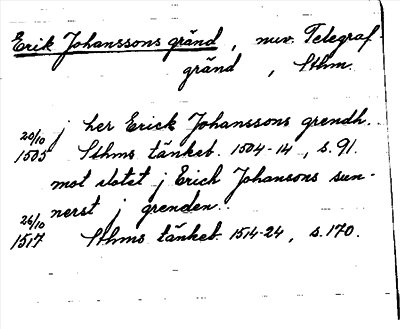 Erik Johanssons gränd, nuv. Telegraf-
gränd, Sthm.
20/10 j her Erick Johanssons grendh.
1505 Sthms tänkeb. 1504-14, s. 91.
mot slotet j Erich Johansons sun-
nerst j grenden.
26/10
1517 Sthms tänkeb. 1514-24, s. 170.